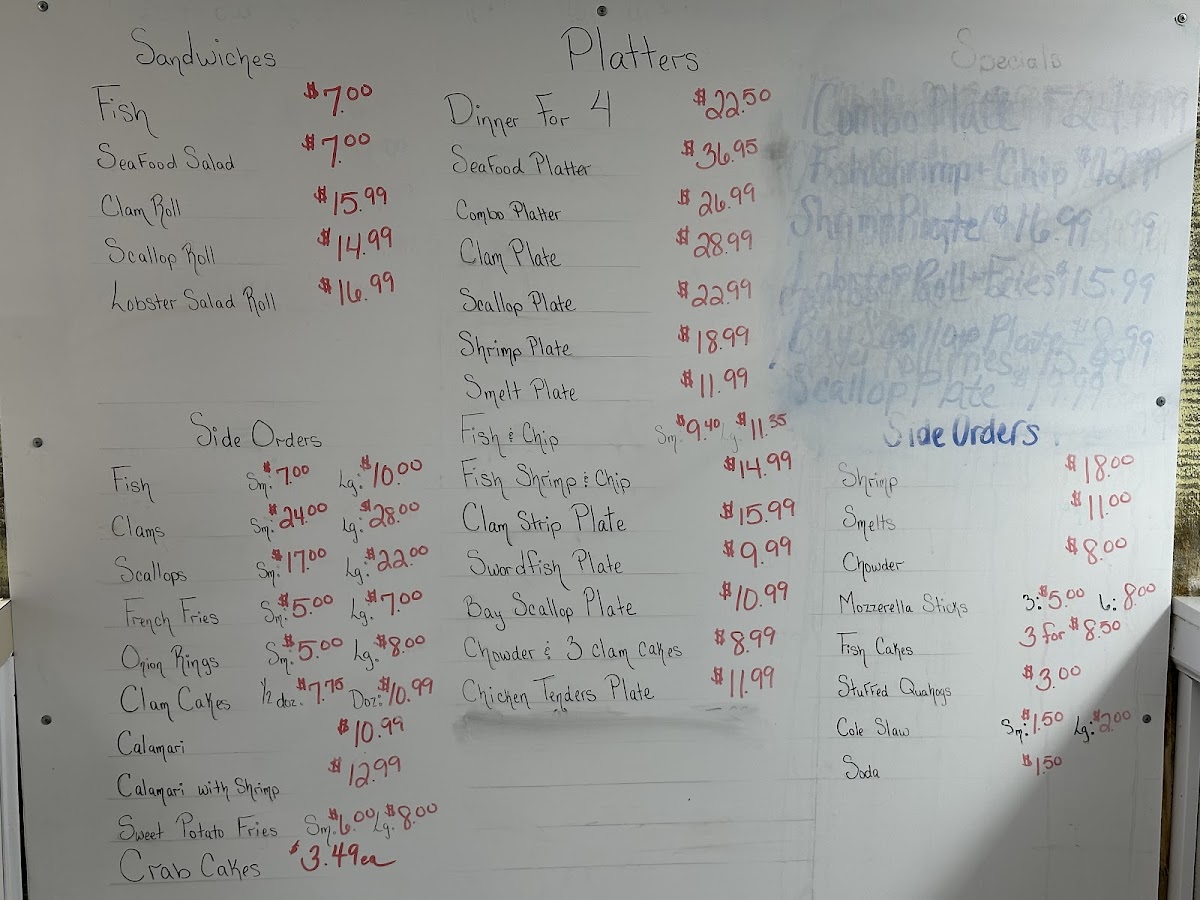 Sandwiches
Fish $7.00
Seafood Salad $7.00
Clam Roll $15.99
Scallop Roll $14.99
Lobster Salad Roll $16.99
Side Orders
Fish Sm: $7.00 Lg: $10.00
Clams Sm: $24.00 Lg: $28.00
Scallops Sm: $17.00 Lg: $22.00
French Fries Sm: $5.00 Lg: $7.00
Onion Rings Sm: $5.00 Lg: $8.00
Clam Cakes 1/2 doz. $7.75 Doz: $10.99
Calamari $10.99
Calamari with Shrimp $12.99
Sweet Potato Fries Sm: $6.00 Lg: $8.00
Crab Cakes $3.49ea
Platters
Dinner For 4 $22.50
Seafood Platter $36.95
Combo Platter $26.99
Clam Plate $28.99
Scallop Plate $22.99
Shrimp Plate $18.99
Smelt Plate $11.99
Fish & Chip Sm: $9.40 Lg: $11.35
Fish Shrimp & Chip $14.99
Clam Strip Plate $15.99
Swordfish Plate $9.99
Bay Scallop Plate $10.99
Chowder & 3 clam cakes $8.99
Chicken Tenders Plate $11.99
Specials
Combo Plate
Fish Shrimp + Chip $12.99
Shrimp Plate $16.99
Lobster Roll + Fries $15.99
Bay Scallop Plate $8.99
Scallop Plate
Side Orders
Shrimp $18.00
Smelts $11.00
Chowder $8.00
Mozzerella Sticks 3: $5.00 6: 8.00
Fish Cakes 3 for $8.50
Stuffed Quahogs $3.00
Cole Slaw Sm: $1.50 Lg: $2.00
Soda $1.50